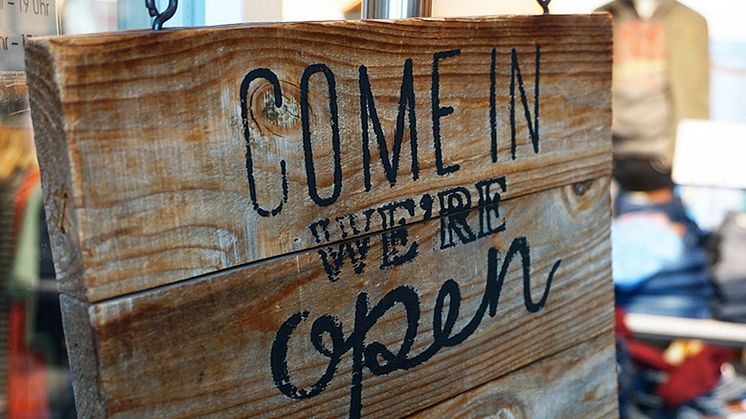 - 19 Uhr
COME IN
WE'RE
open